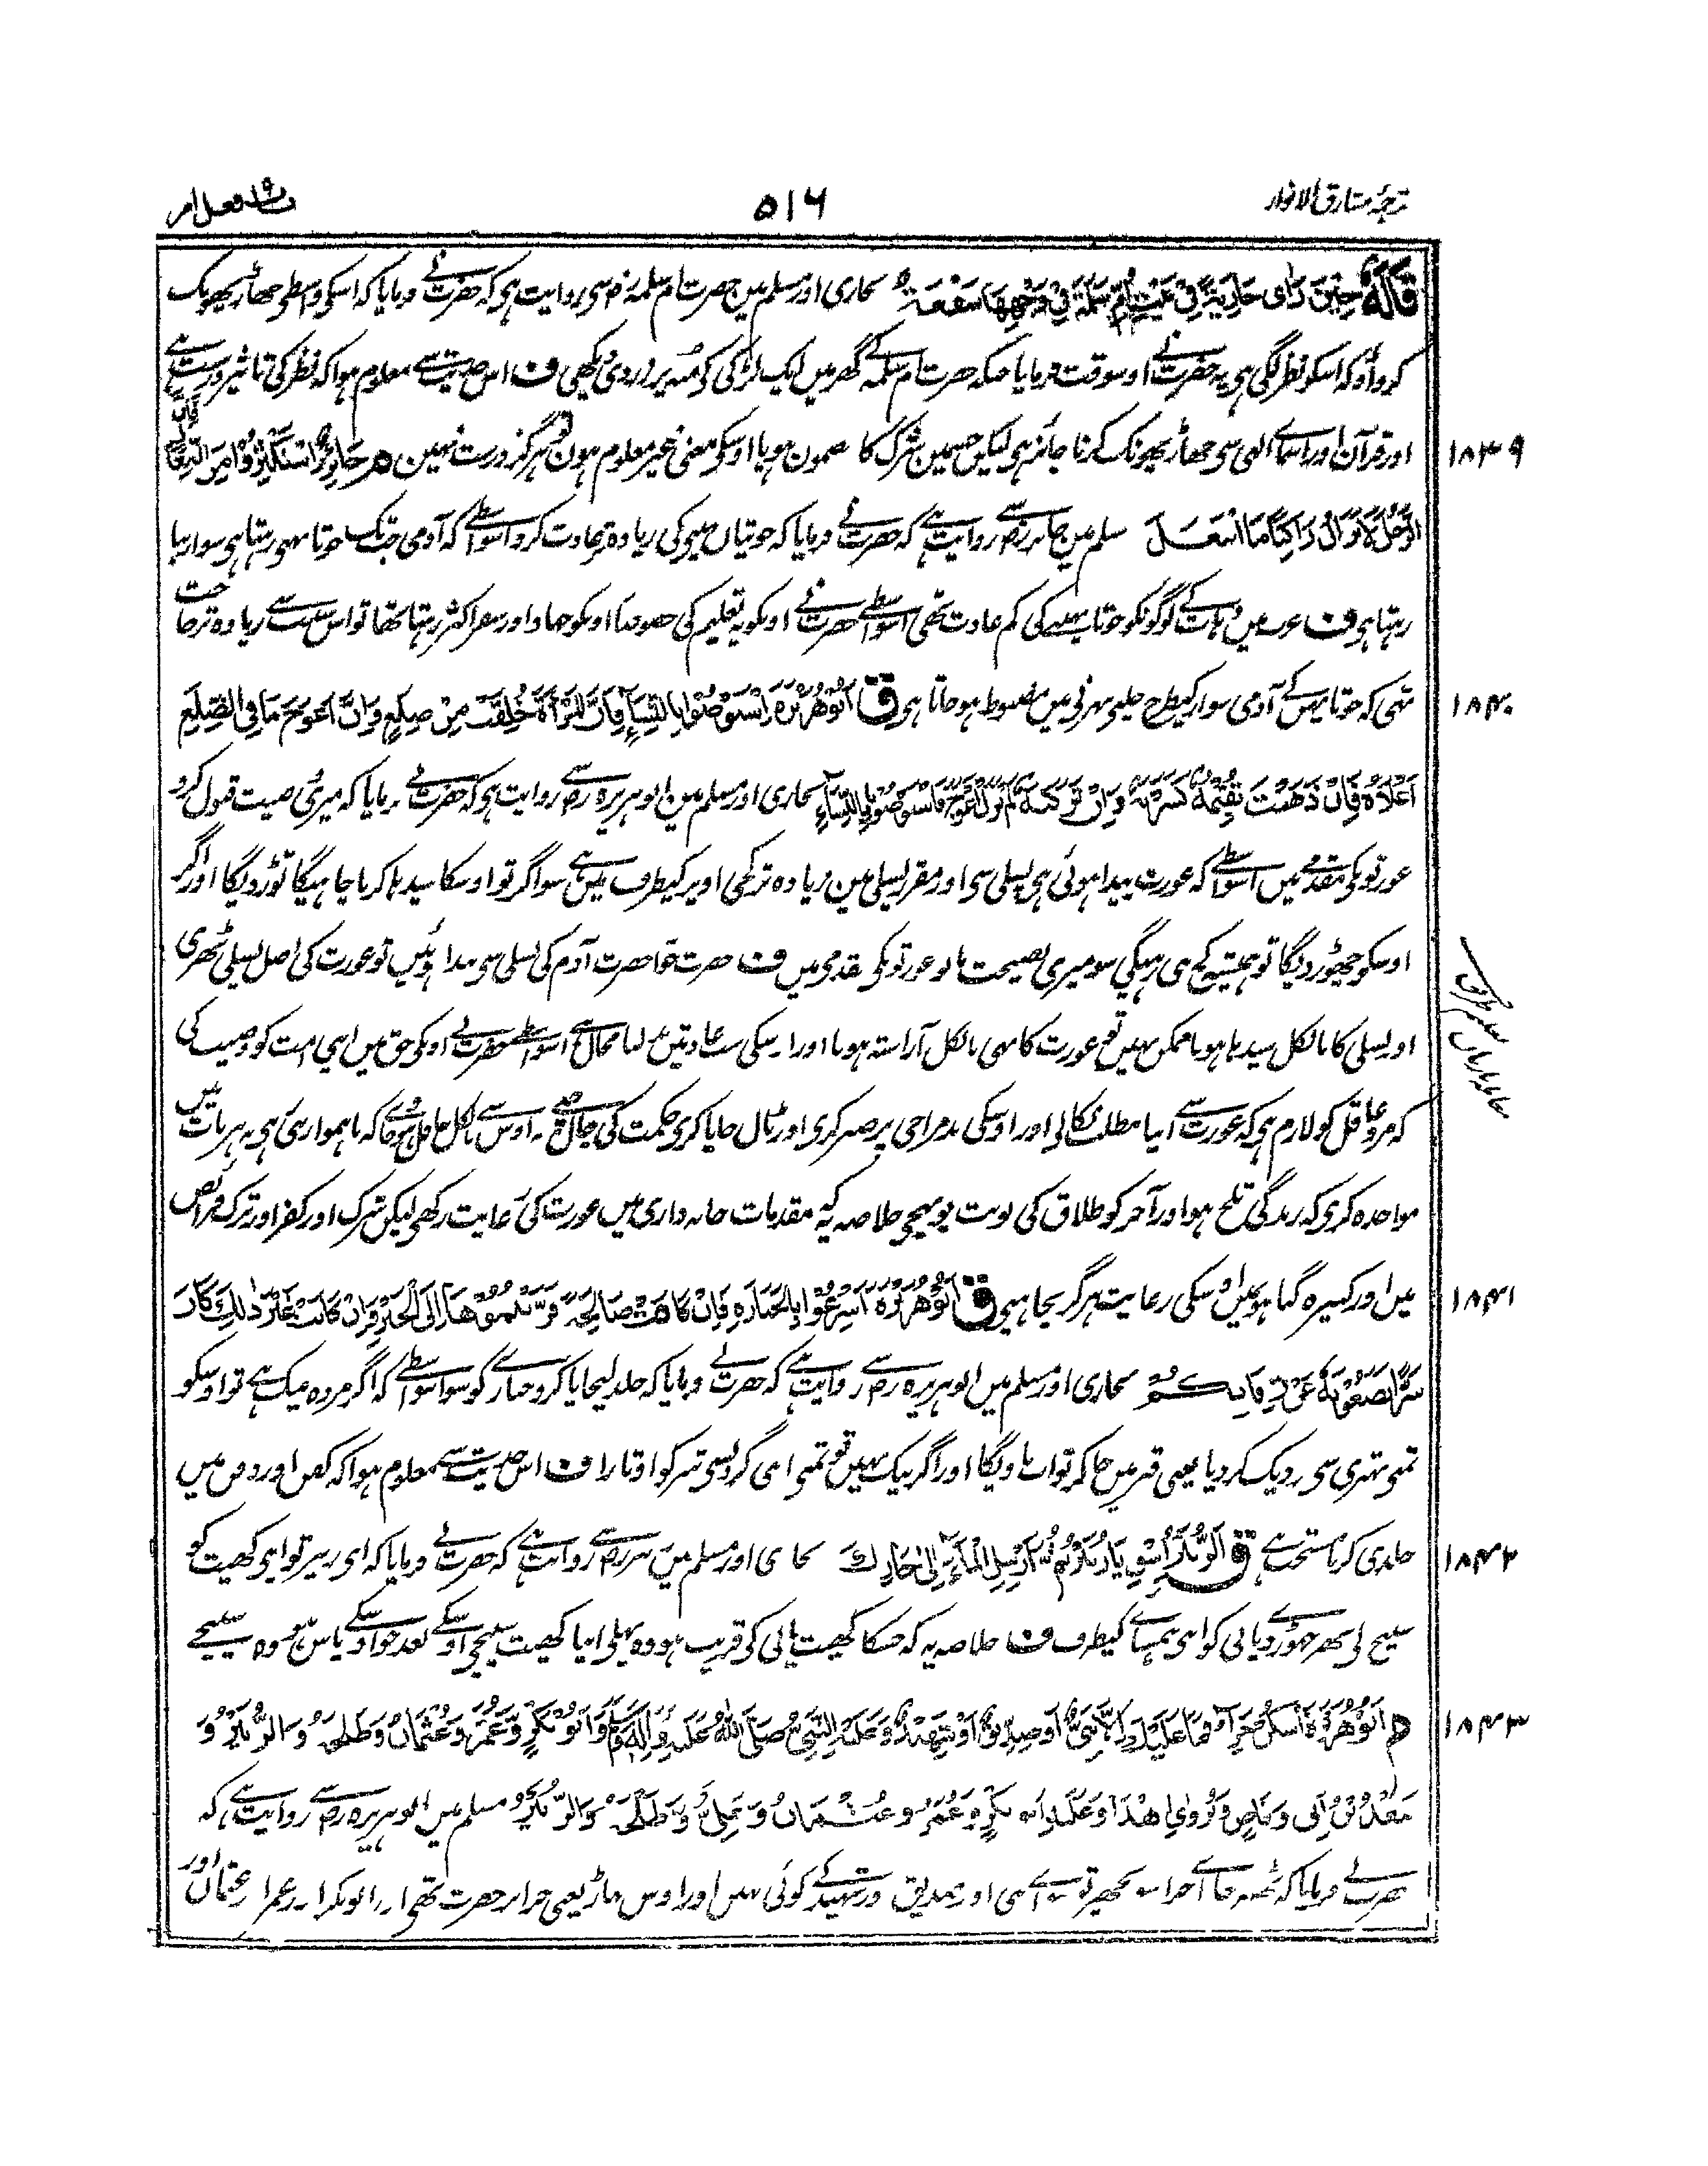 ترجمۂ مشارق الانوار
۵۱۶
باب۹ فعل امر
قَالَهُ حِيْنَ رَاٰى جَارِيَةً فِيْ بَيْتِ اُمِّ سَلَمَةَ فِيْ وَجْهِهَا سَفْعَةٌ بخاری اور مسلم مین حضرت ام سلمہ رض سی روایت ہی کہ حضرت نے فرمایا کہ اسکو واسطی جھاڑ پھونک
کرواؤ کہ اسکو نظر لگی ہی یہ حضرت نے اوسوقت فرمایا جبکہ حضرت ام سلمہ کے گھر میں ایک لڑکی کو منہ پر زردی دیکھی ف اس حدیث سے معلوم ہوا کہ نظر کی تاثیر درست ہے
۱۸۳۹
اور قرآن اور اسمای الٰہی سی جھاڑ پھونک کرنا جائز ہی لیکن جسمین شرک کا مضمون ہو یا اوسکو معنی غیر معلوم ہون تو ہرگز درست نہین م جَابِرٌ اسْتَكْثِرُوْا مِنَ النِّعَالِ فَاِنَّ
الرَّجُلَ لَا يَزَالُ رَاكِبًا مَا انْتَعَلَ مسلم مین جابر رض سے روایت ہے کہ حضرت نے فرمایا کہ جوتیان پہننی کی زیادہ تر عادت کرو اسواسطے کہ آدمی جب تک جوتا پہنی رہتا ہی سوار بنا
رہتا ہی ف عرب میں دیہات کے لوگونکو جوتا پہننے کی کم عادت تھی اسواسطے حضرت نے اونکو یہ تعلیم کی خصوصًا اونکو جہاد اور سفر اکثر رہتا تھا تو اس سبب سے زیادہ تر حاجت
۱۸۴۰
تھی کہ جوتا پہن کے آدمی سوار کیطرح چلنی پھرنی میں مضبوط ہو جاتا ہی ق اَبُوْهُرَيْرَةَ اِسْتَوْصُوْا بِالنِّسَآءِ فَاِنَّ الْمَرْاَةَ خُلِقَتْ مِنْ ضِلَعٍ وَاِنَّ اَعْوَجَ مَا فِي الضِّلَعِ
اَعْلَاهُ فَاِنْ ذَهَبْتَ تُقِيْمُهُ كَسَرْتَهُ وَاِنْ تَرَكْتَهُ لَمْ يَزَلْ اَعْوَجَ فَاسْتَوْصُوْا بِالنِّسَآءِ بخاری اور مسلم مین ابو ہریرہ رض سے روایت ہی کہ حضرت نے فرمایا کہ میری وصیت قبول کرو
عورتونکی مقدمے میں اسواسطے کہ عورت پیدا ہوئی ہی پسلی سی اور مقرر پسلی مین زیادہ تر کجی اوپر کیطرف میں ہے سو اگر تو اوسکا سیدہا کرنا چاہیگا توڑ دیگا اور اگر
اوسکو چھوڑ دیگا تو ہمیشہ کج ہی رہیگی سو میری نصیحت مانو عورتونکی مقدمی میں ف حضرت حوا حضرت آدم کی پسلی سی پیدا ہوئیں تو عورت کی اصل پسلی ٹھہری
اور پسلی کا بالکل سیدہا ہونا ممکن نہیں تو عورت کا بھی بالکل آراستہ ہونا اور اوسکی سب عادتیں سنبھلنا محال ہے اسواسطے حضرت نے اونکی حق میں اپنی امت کو وصیت کی
کہ مرد عاقل کو لازم ہی کہ عورت سے اپنا مطلب نکالی اور اوسکی بدمزاجی پر صبر کری اور ٹال جایا کری حکمت کی چال چلے نہ اوس سے بالکل غافل ہو جاے کہ ناہموار رہی نہ ہر بات میں
مواخذہ کری کہ زندگی تلخ ہو اور آخر کو طلاق کی نوبت پہونچی خلاصہ کہ یہ مقدمات خانہ داری میں عورت کی رعایت رکھی لیکن شرک اور کفر اور ترک فرائض
۱۸۴۱
میں اور کبیرہ گناہوں میں اوسکی رعایت ہرگز نچاہیی ق اَبُوْهُرَيْرَةَ اَسْرِعُوْا بِالْجَنَازَةِ فَاِنْ كَانَتْ صَالِحَةً قَرَّبْتُمُوْهَا اِلَى الْخَيْرِ وَاِنْ كَانَتْ غَيْرَ ذٰلِكَ كَانَ
شَرًّا تَضَعُوْنَهُ عَنْ رِقَابِكُمْ بخاری اور مسلم میں ابو ہریرہ رض سے روایت ہے کہ حضرت نے فرمایا کہ جلد لیجایا کرو جنازے کو سو اسواسطے کہ اگر مردہ نیک ہے تو اوسکو
تمنی بہتری سی نزدیک کر دیا یعنی قبر میں جا کر ثواب پاویگا اور اگر نیک نہیں تو تمنی اپنی گردنسی شر کو اوتارا ف اس حدیث سے معلوم ہوا کہ کفن اور دفن میں
۱۸۴۲
جلدی کرنا مستحب ہے ق اَلزُّبَيْرُ اسْقِ يَا زُبَيْرُ ثُمَّ اَرْسِلِ الْمَآءَ اِلٰى جَارِكَ بخاری اور مسلم مین زبیر رض سے روایت ہے کہ حضرت نے فرمایا کہ ای زبیر تو اپنی کھیت کو
سینچ لی پھر چھوڑ دی پانی کو اپنی ہمسایے کیطرف ف خلاصہ یہ کہ جسکا کھیت پانی کی قریب ہو وہ پہلی اپنا کھیت سینچی اوسکے بعد جو اوسکے پاس ہو وہ سینچے
۱۸۴۳
م اَبُوْهُرَيْرَةَ اُسْكُنْ حِرَآءُ فَمَا عَلَيْكَ اِلَّا نَبِيٌّ اَوْ صِدِّيْقٌ اَوْ شَهِيْدٌ وَعَلَيْهِ النَّبِيُّ صَلَّى اللهُ عَلَيْهِ وَاٰلِهِ وَسَلَّمَ وَاَبُوْبَكْرٍ وَّعُمَرُ وَعُثْمَانُ وَطَلْحَةُ وَالزُّبَيْرُ وَ
سَعْدُ بْنُ اَبِي وَقَّاصٍ وَيُرْوٰى اِهْدَأْ وَعَلَيْهِ اَبُوْبَكْرٍ وَعُمَرُ وَعُثْمَانُ وَعَلِيٌّ وَطَلْحَةُ وَالزُّبَيْرُ مسلم میں ابو ہریرہ رض سے روایت ہے کہ
حضرت نے فرمایا کہ ٹھہر جا اے حرا سو تجھپر تو سواے نبی اور صدیق اور شہید کے کوئی نہیں اور اوس پہاڑ یعنی حرا پر حضرت تھی اور ابوبکر اور عمر اور عثمان اور